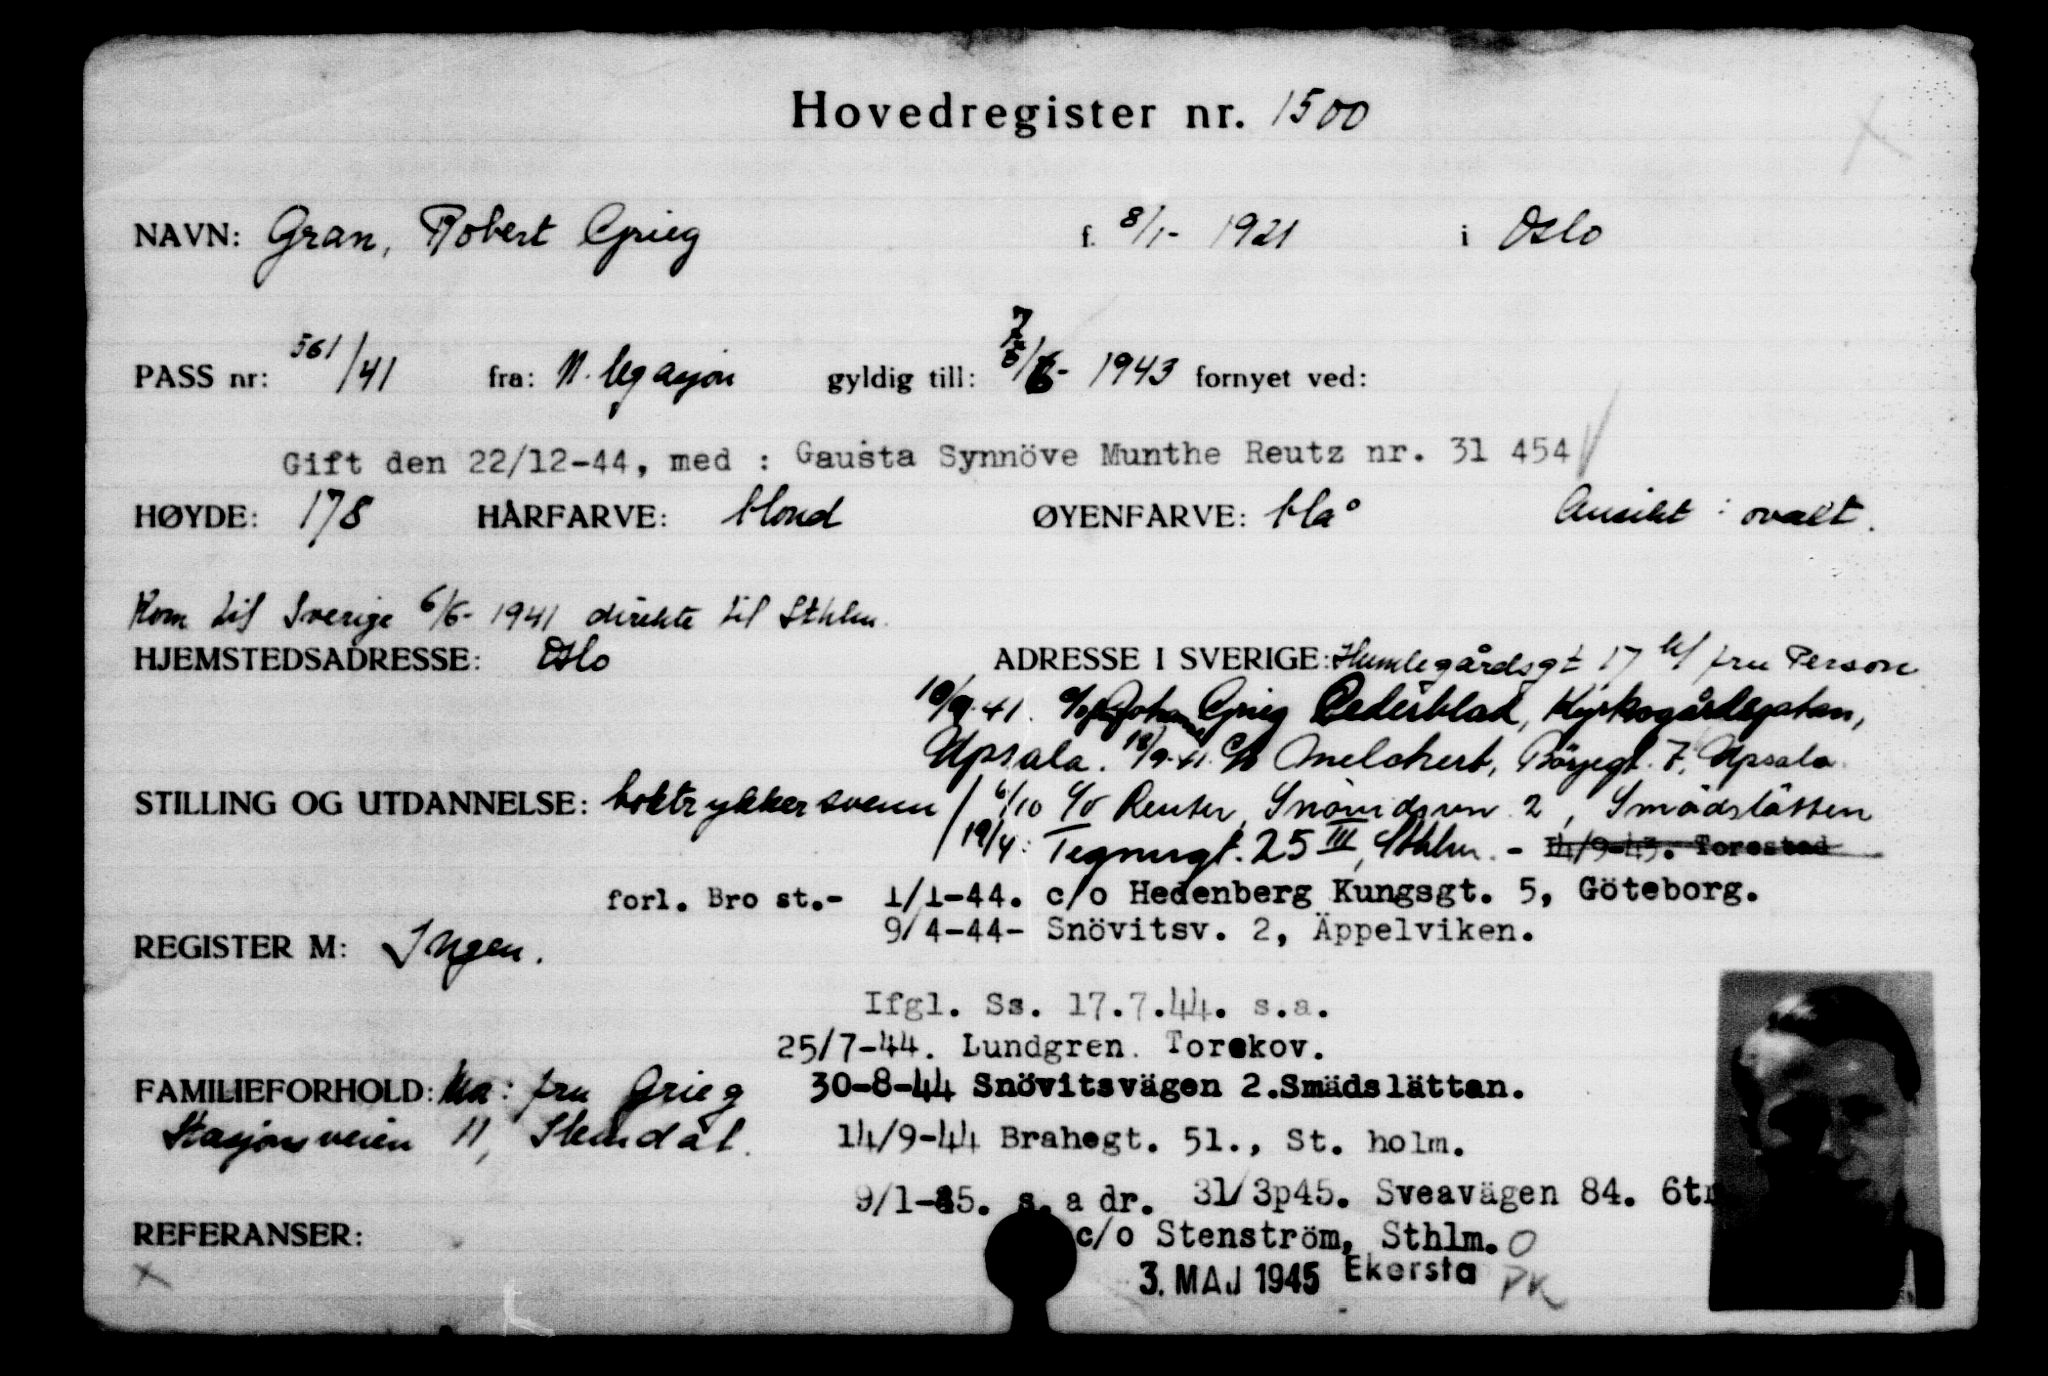 Hovedregister nr. 1500
NAVN: Gran, Robert Grieg f. 8/1- 1921 i Oslo
PASS nr: 561/41 fra: N. legasjon gyldig till: 1943 fornyet ved:
Gift den 22/12-44, med : Gausta Synnöve Munthe Reutz nr. 31 454
HØYDE: 178 HÅRFARVE: blond ØYENFARVE: blå Ansikt : ovalt.
Kom til Sverige 6/6- 1941 direkte til Sthlm.
HJEMSTEDSADRESSE: Oslo ADRESSE I SVERIGE: Humlegårdsgt 17 fru Person
10/9.41. c/o Johan Grieg Cederblad, Kyrkogårdsgatan,
Upsala. 18/9.41. c/o Melchert, Börjegt. 7, Upsala.
STILLING OG UTDANNELSE: boktrykkersvenn / 6/10 c/o Reuter, 2, Smädslätten
19/4: Tegnérgt. 25 III, Sthlm. - 14/9-43. Torestad
forl. Bro st.- 1/1-44. c/o Hedenberg Kungsgt. 5, Göteborg.
9/4-44- Snövitsv. 2, Äppelviken.
REGISTER M: Ingen.
Ifgl. Ss. 17.7.44. s.a.
25/7-44. Lundgren. Torekov.
FAMILIEFORHOLD: Mor: fru Grieg 30-8-44 Snövitsvägen 2.Smädslättan.
Stasjonsveien 11, Slemdal. 14/9-44 Brahegt. 51., St. holm.
9/1-45. s. adr. 31/3p45. Sveavägen 84. 6tr
REFERANSER: c/o Stenström, Sthlm. O
3. MAJ 1945 Ekersta PK